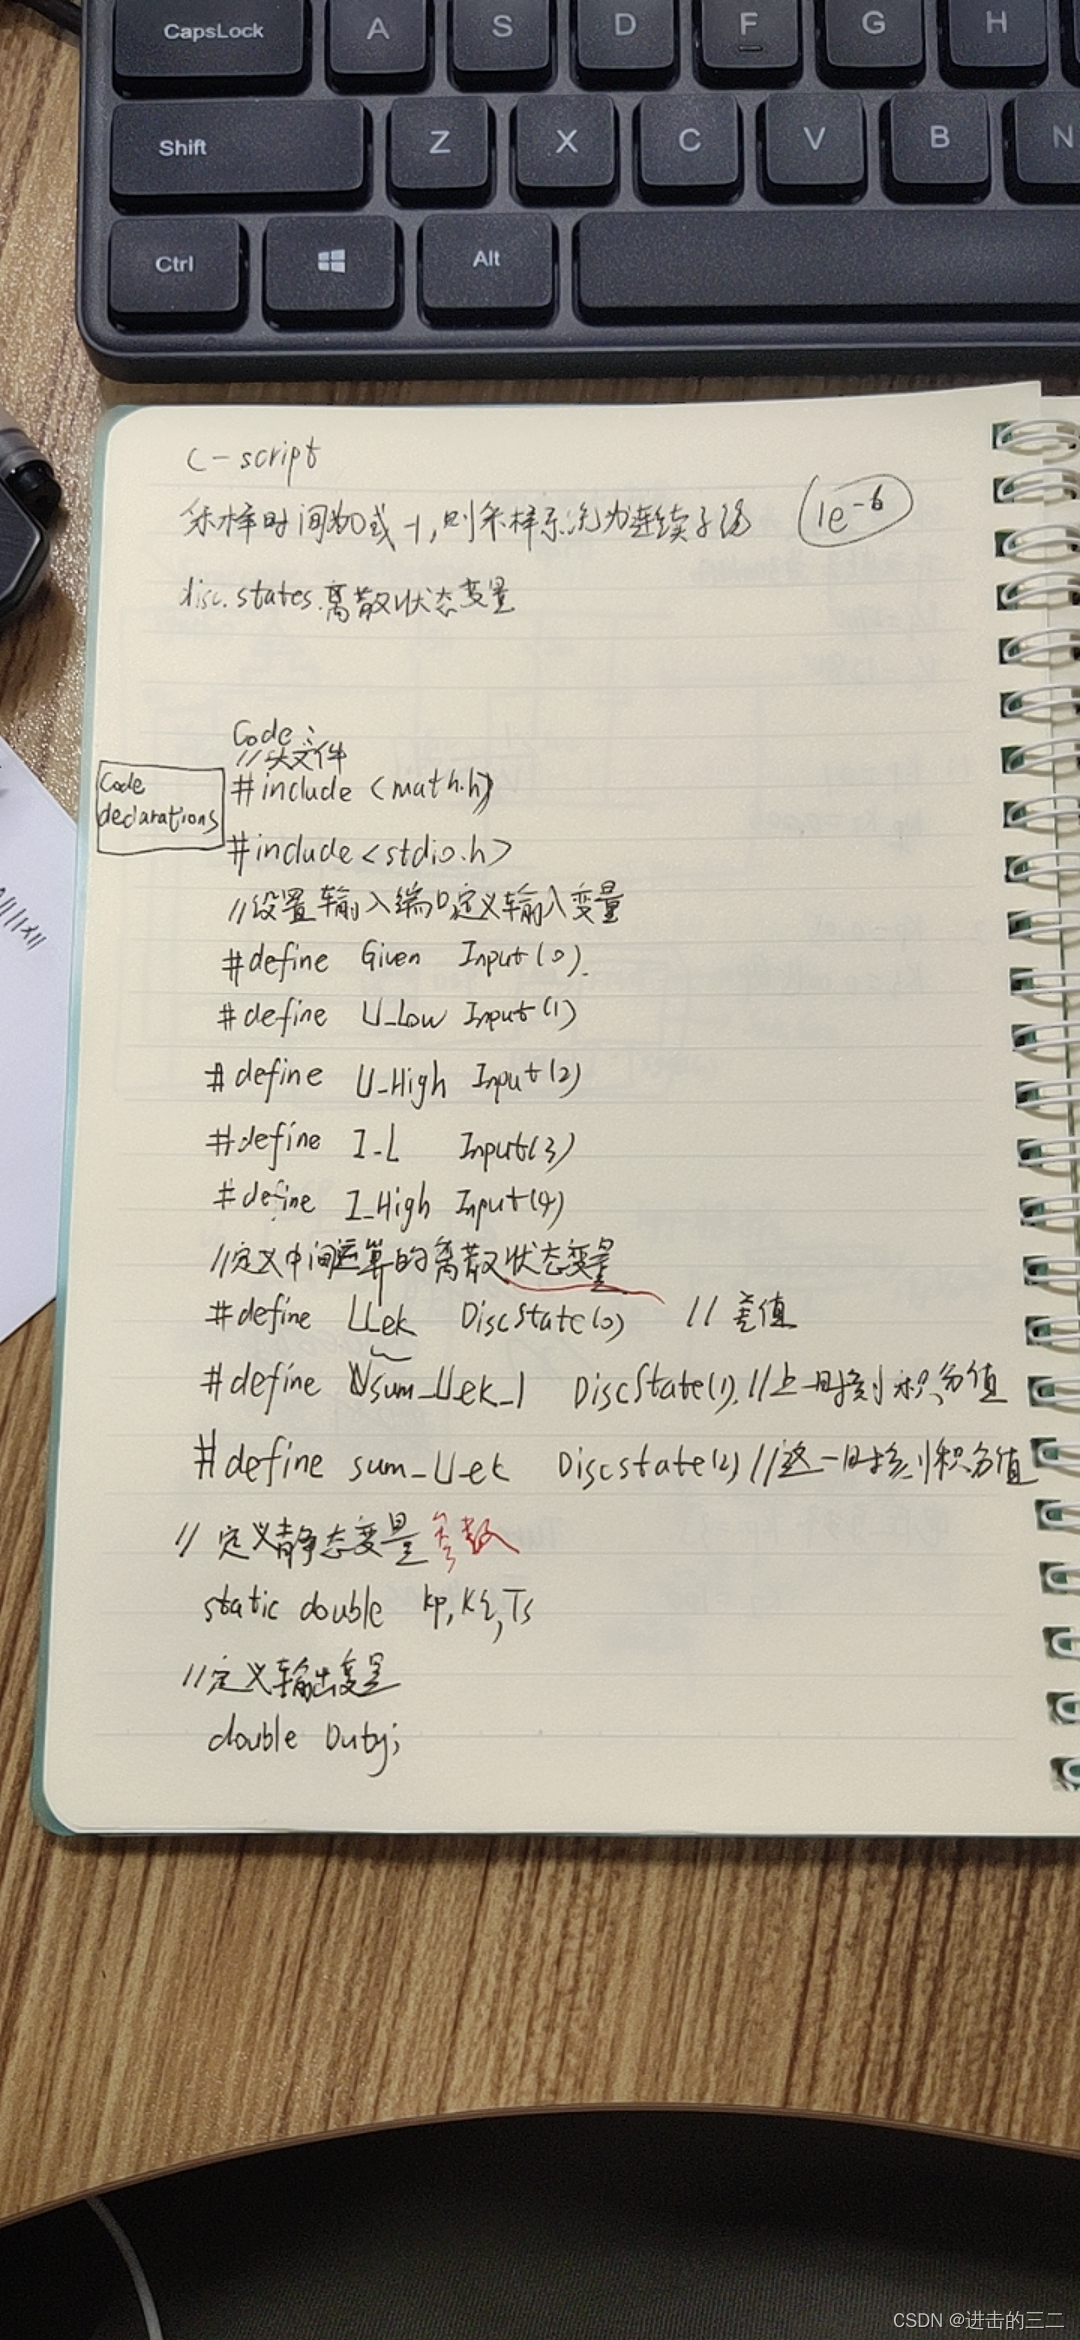 CapsLock A S D F G H
Shift Z X C V B N
Ctrl Alt
C-script
采样时间为0或-1,则采样系统为连续子 1e-6
disc.states.离散状态变量
Code:
//头文件
Code declarations
#include <math.h>
#include <stdio.h>
//设置输入端口定义输入变量
#define Given Input(0).
#define U_Low Input(1)
#define U_High Input(2)
#define I_L Input(3)
#define I_High Input(4)
//定义中间运算的离散状态变量
#define U_ek DiscState(0) //差值
#define sum_U_ek_1 DiscState(1).//上一时刻积分值
#define sum_U_ek Discstate(2) //这一时刻积分值
//定义静态变量参数
static double kp,Ki,Ts
//定义输出变量
double Duty;
CSDN @进击的三二